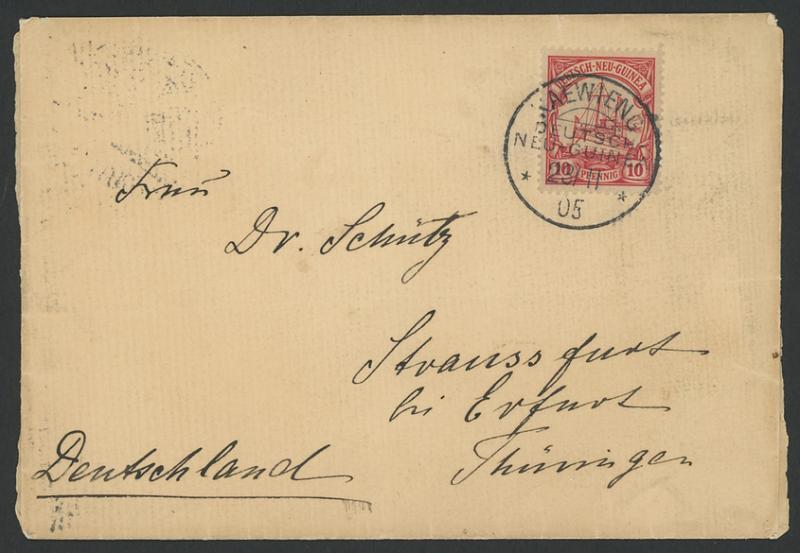 DEUTSCH-NEU-GUINEA
10 PFENNIG 10
LAEWIENG
DEUTSCH
NEU-GUINEA
* 23/11 *
05
Frau
Dr. Schütz
Straussfurt
bei Erfurt
Thüringen
Deutschland